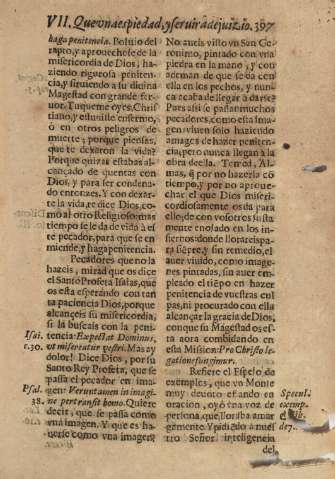 VII. Que vna es piedad, y seruirà de juizio. 397
haga penitencia. Boluiò del
rapto, y aprouechose de la
misericordia de Dios, ha-
ziendo rigurosa peniten-
cia, y siruiendo a su diuina
Magestad con grande fer-
uor. Tuqueme oyes, Chris-
tiano, y estuuiste enfermo,
ò en otros peligros de
muerte; porque piensas,
que te dexaron la vida?
Porque quizas estabas al-
cançado de quentas con
Dios, y para ser condena-
do entonzes. Y con dexar-
te la vida, te dize Dios, co-
mo al otro Religioso: mas
tiempo se le da de vida à es-
te pecador, para que se en-
miende, y haga penitencia.
Pecadores que no la
hazeis, mirad que os dize
el Santo Profeta Isaias, que
os esta esperando con tan-
ta paciencia Dios, porque
alcanceis su misericordia,
si la buscais con la peni-
Isai. tencia: Expectat Dominus,
c.30. vt misereatur vestri. Mas ay
dolor! Dize Dios, por su
Santo Rey Profeta, que se
passa el pecador en ima-
Psal. gen: Veruntamen in imagi-
38. ne pertransit homo. Quiere
dezir, que se passa como
vna imagen. Y que es ha-
zerse como vna imagen?
No aueis visto vn San Ge-
ronimo, pintado con vna
piedra en la mano, y con
ademan de que se da con
ella en los pechos, y nun-
ca acaba de llegar à darse?
Pues assi se passan muchos
pecadores, como esta ima-
gen viuen solo haziendo
amagos de hazer peniten-
cia, pero nunca llegan à la
obra della. Temed, Al-
mas, q̃ por no hazerla cõ
tiempo, y por no aproue-
char el que Dios miseri-
cordiosamente os da para
ello, de con vosotros justa-
mente enojado en los in-
fiernos donde llorareis pa-
ra siẽpre, y sin remedio, el
auer viuido, como image-
nes pintadas, sin auer em-
pleado el tiẽpo en hazer
penitencia de vuestras cul-
pas, ni procurado con ella
alcançar la gracia de Dios,
con que su Magestad os es-
ta aora combidando en
esta Mission: Pro Christo le-
gatione fungimur.
Refiere el Espejo de
exemplos, que vn Monje Specul.
muy deuoto estando en exemp.
oracion, oyò vna voz de
persona, que lloraba amar-
gamente. Y pidiendo à nues-
tro Señor inteligencia
del